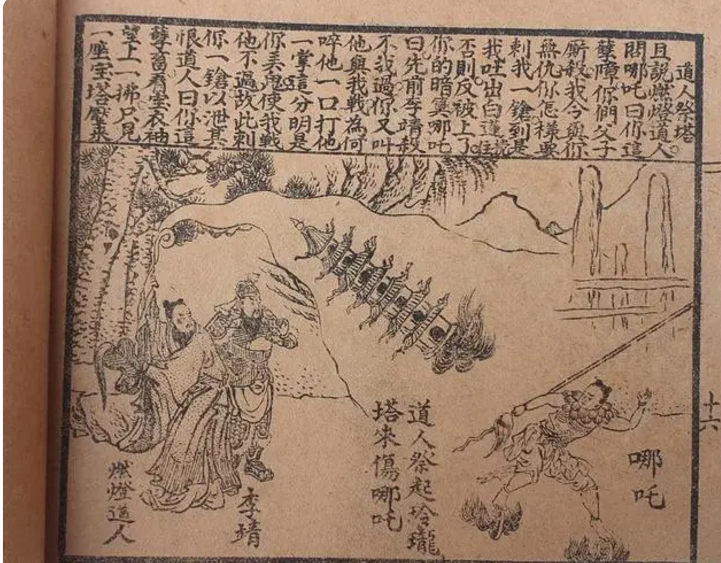 道人祭塔
且說燃燈道人
問哪吒曰你這
孽障你們父子
厮殺我今與你
無仇你怎樣要
刺我一鎗到是
我吐出白蓮住
否則反被上了
你的暗算哪吒
曰先前李靖殺
不過你又叫
他與我戰為何
啐他一口打他
一掌這分明是
你鬼使我戰
他不過故此刺
你一鎗以泄其
恨道人曰你這
孽畜看衣袖
望上一拂只見
一座宝塔壓來
十六
哪吒
道人祭起玲瓏
塔來傷哪吒
李靖
燃燈道人